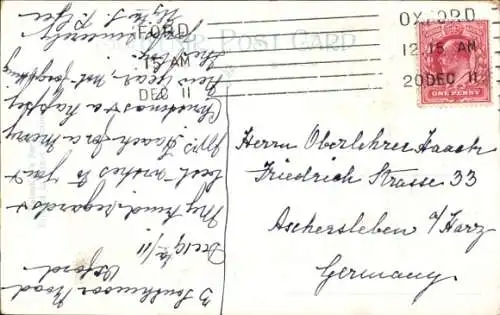 OXFORD
12.15 AM
20 DEC 11
FORD
15 AM
DEC 11
POST CARD
ONE PENNY
Herrn Oberlehrer Haack
Friedrich Strasse 33
Aschersleben a/Harz
Germany
3 Southmoor Road
Oxford
Dec 19/11
My kind regards &
best wishes to you &
Mrs Haack for a merry
Christmas & a happy
New Year, not forgetting
the
sincerely